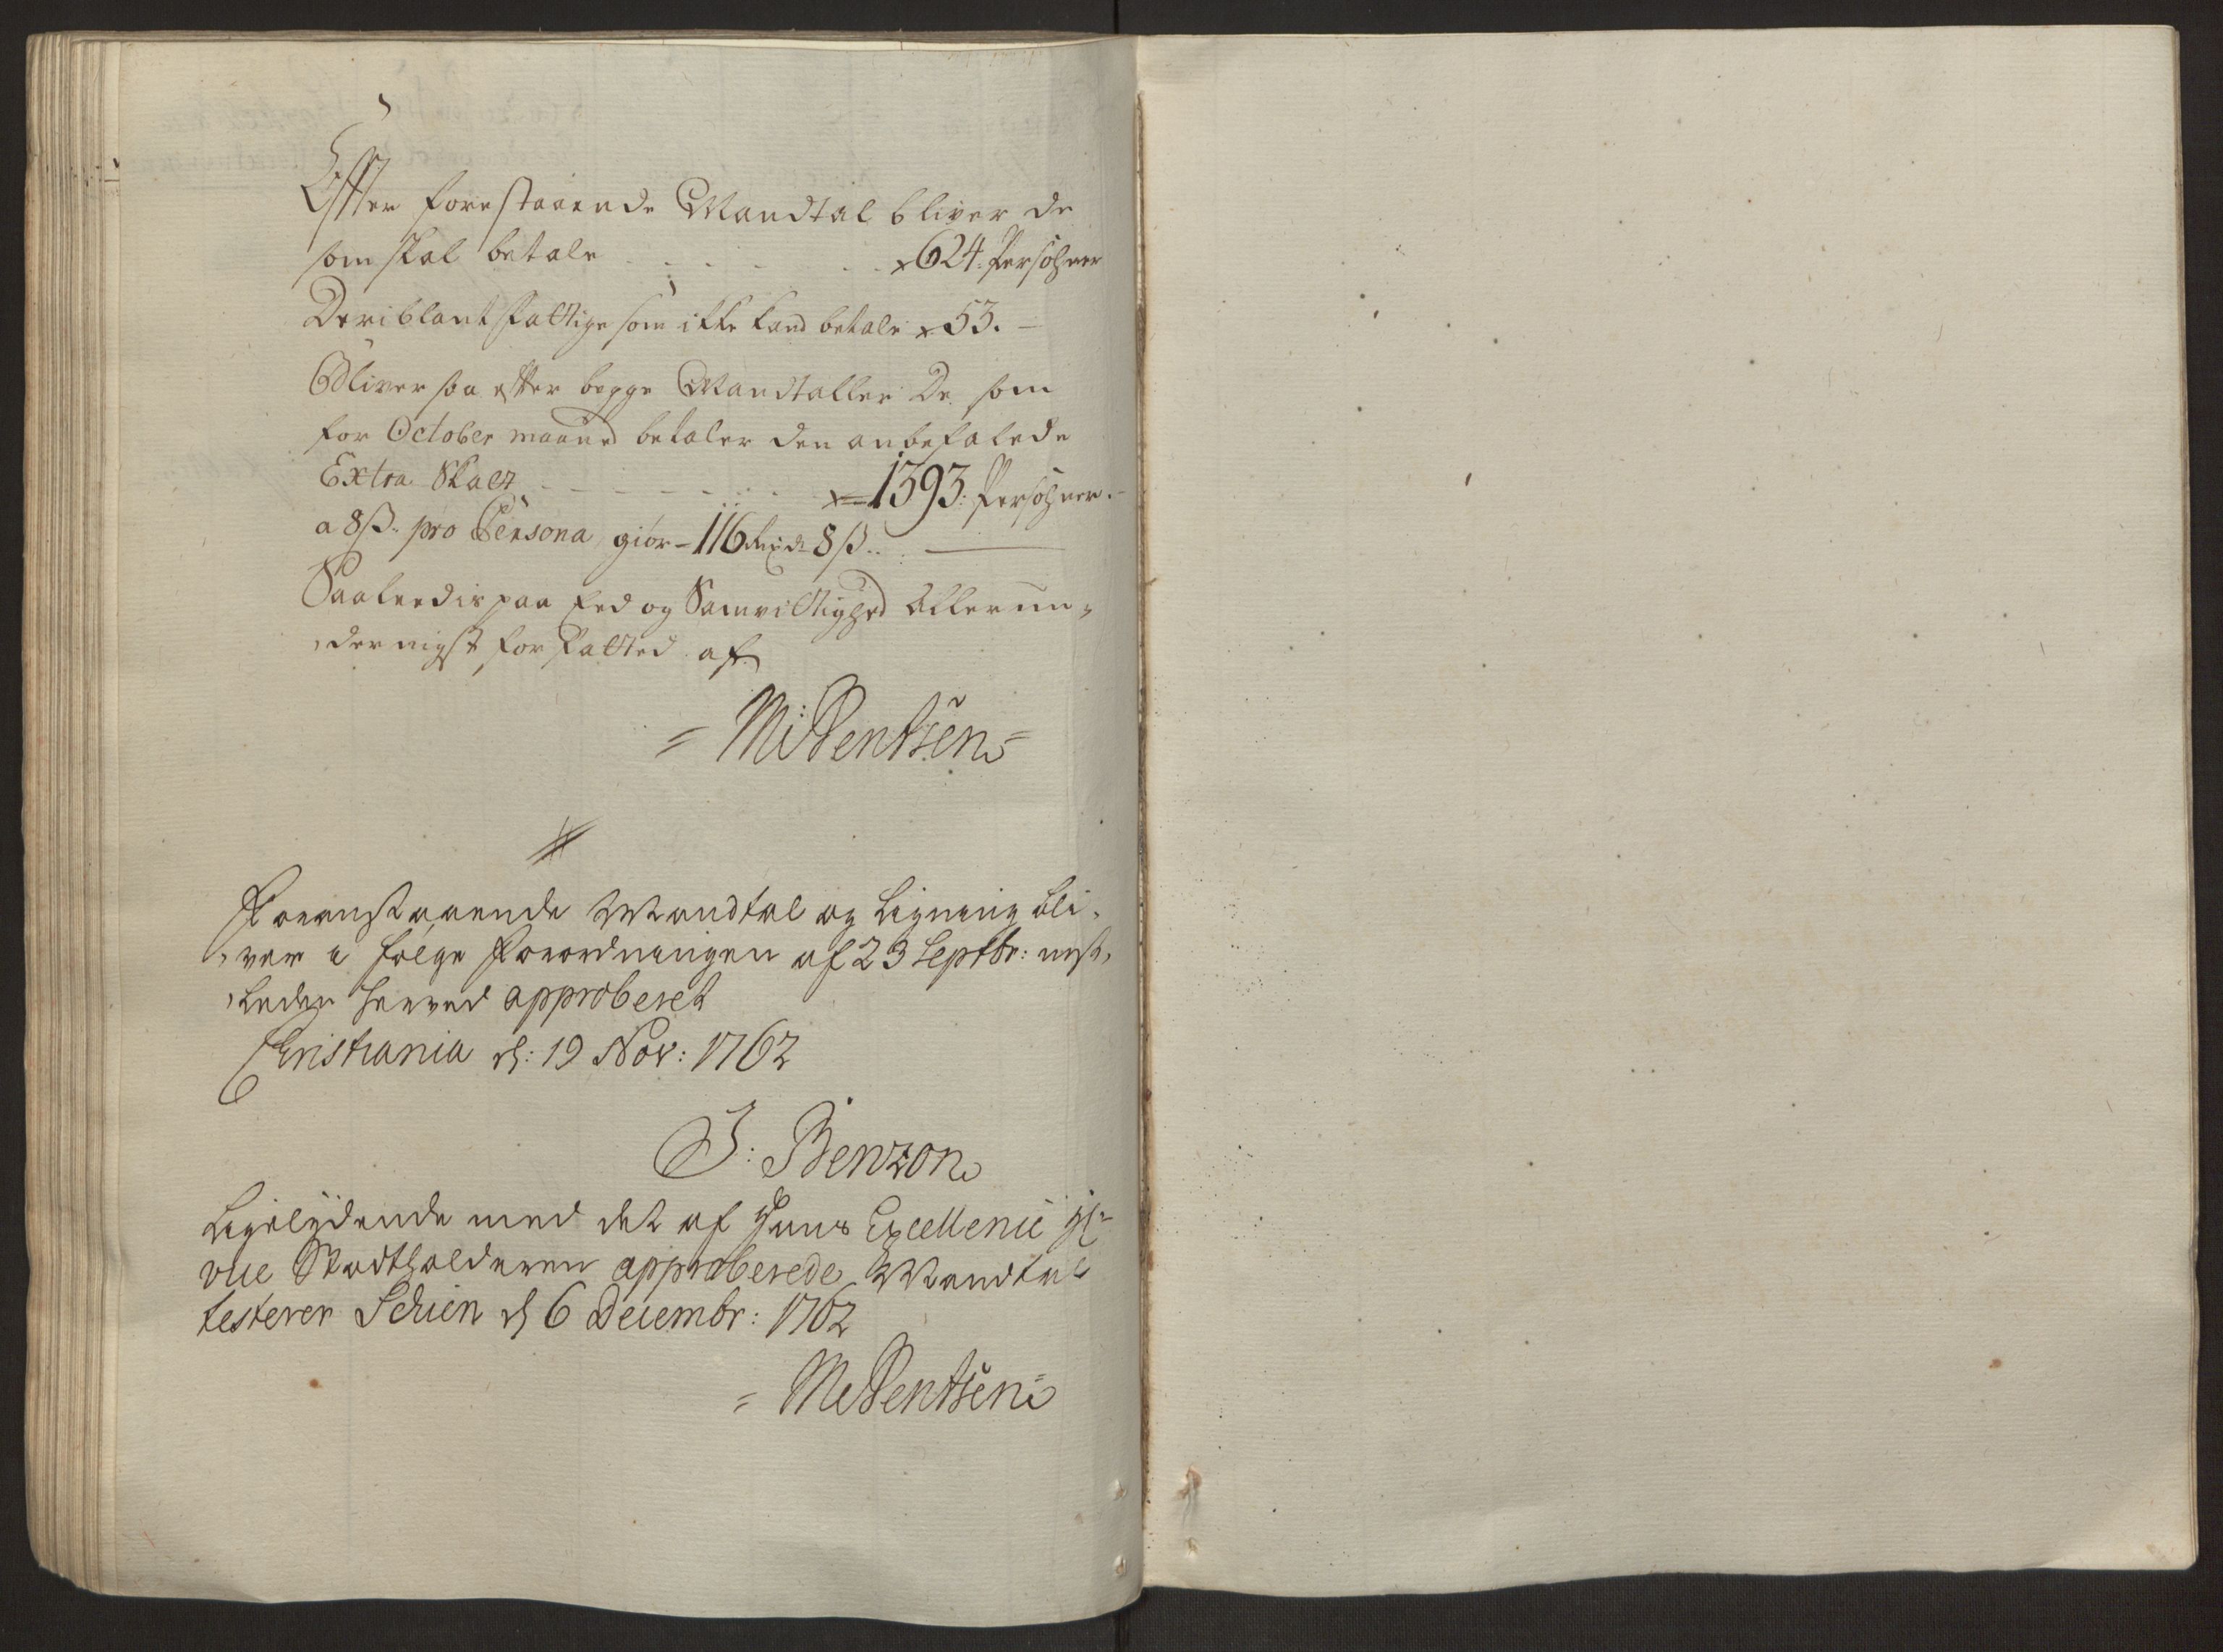 Efter forestaaende Mandtal bliver de
som skal betale - - - - x 624. Persohner
Deriblant fattige som ikke kand betale x 53. -
Bliver saa efter begge Mandtaller De som
for October maaned betaler den anbefalede
Extra Skatt - - - - - - x 1393: Persohner. -
a 8 β. pro Persona giør - 116 rixd 8 β..
Saaleedis paa Eed og Samvittighed allerun-
dernigst forfatted af
= M: Bentsen =
Foranstaaende Mandtal og Ligning bli-
ver i følge Forordningen af 23 Septbr: nest-
leden herved approberet
Christiania d: 19 Nov: 1762
J: Benzon
Ligelydende med det af Hans Excellence
vice Stadtholderen approberede Mandtal
testerer Schien d 6 Decembr: 1762
= M Bentsen =